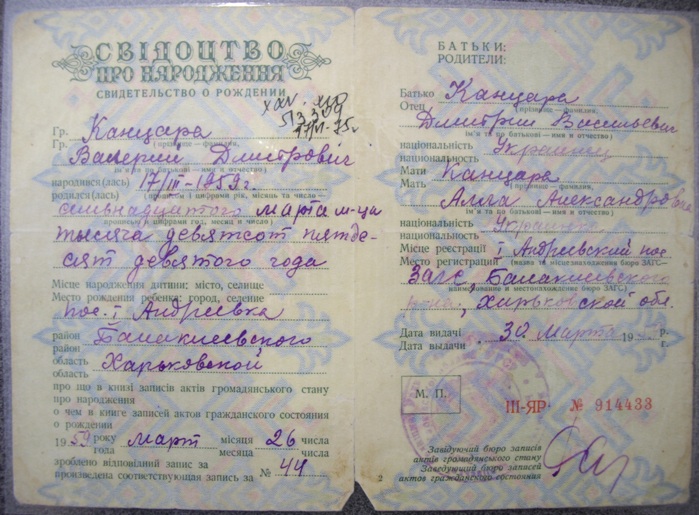 СВІДОЦТВО
ПРО НАРОДЖЕННЯ
СВИДЕТЕЛЬСТВО О РОЖДЕНИИ
Гр. Канцара
(прізвище — фамилия,
Валерий Дмитрович
ім'я та по батькові—имя и отчество)
народився(лась) 17/III-1959г.
родился(лась) (прописом і цифрами рік, місяць та число —
семьнадцатого марта м-ца
прописью и цифрами год, месяц и число)
тысяча девятсот пятде-
сят девятого года
Місце народження дитини: місто, селище
Место рождения ребенка: город, селение
пос. І Андреевка
район Балаклиевского
район
область Харьковской
область
про що в книзі записів актів громадянського стану
про народження
о чем в книге записей актов гражданского состояния
о рождении
1959 року март місяця 26 числа
года месяца числа
зроблено відповідний запис за
произведена соответствующая запись за № 44
БАТЬКИ:
РОДИТЕЛИ:
Батько Канцара
Отец (прізвище — фамилия,
Дмитрий Васильевич
ім'я та по батькові—имя и отчество)
національність Украинец
национальность
Мати Канцара
Мать (прізвище — фамилия,
Алла Александровна
ім'я та по батькові—имя и отчество)
національність Украинка
национальность
Місце реєстрації І Андреевский пос
Место регистрации (назва та місцезнаходження бюро ЗАГС—
ЗАГС, Балаклиевского
наименование и местонахождение бюро ЗАГС)
р-на, Харьковской обл.
Дата видачі 30 Марта 1959 р.
Дата выдачи г.
М. П.
III-ЯР № 914433
Завідуючий бюро записів
актів громадянського стану
Заведующий бюро записей
актов гражданского состояния
2